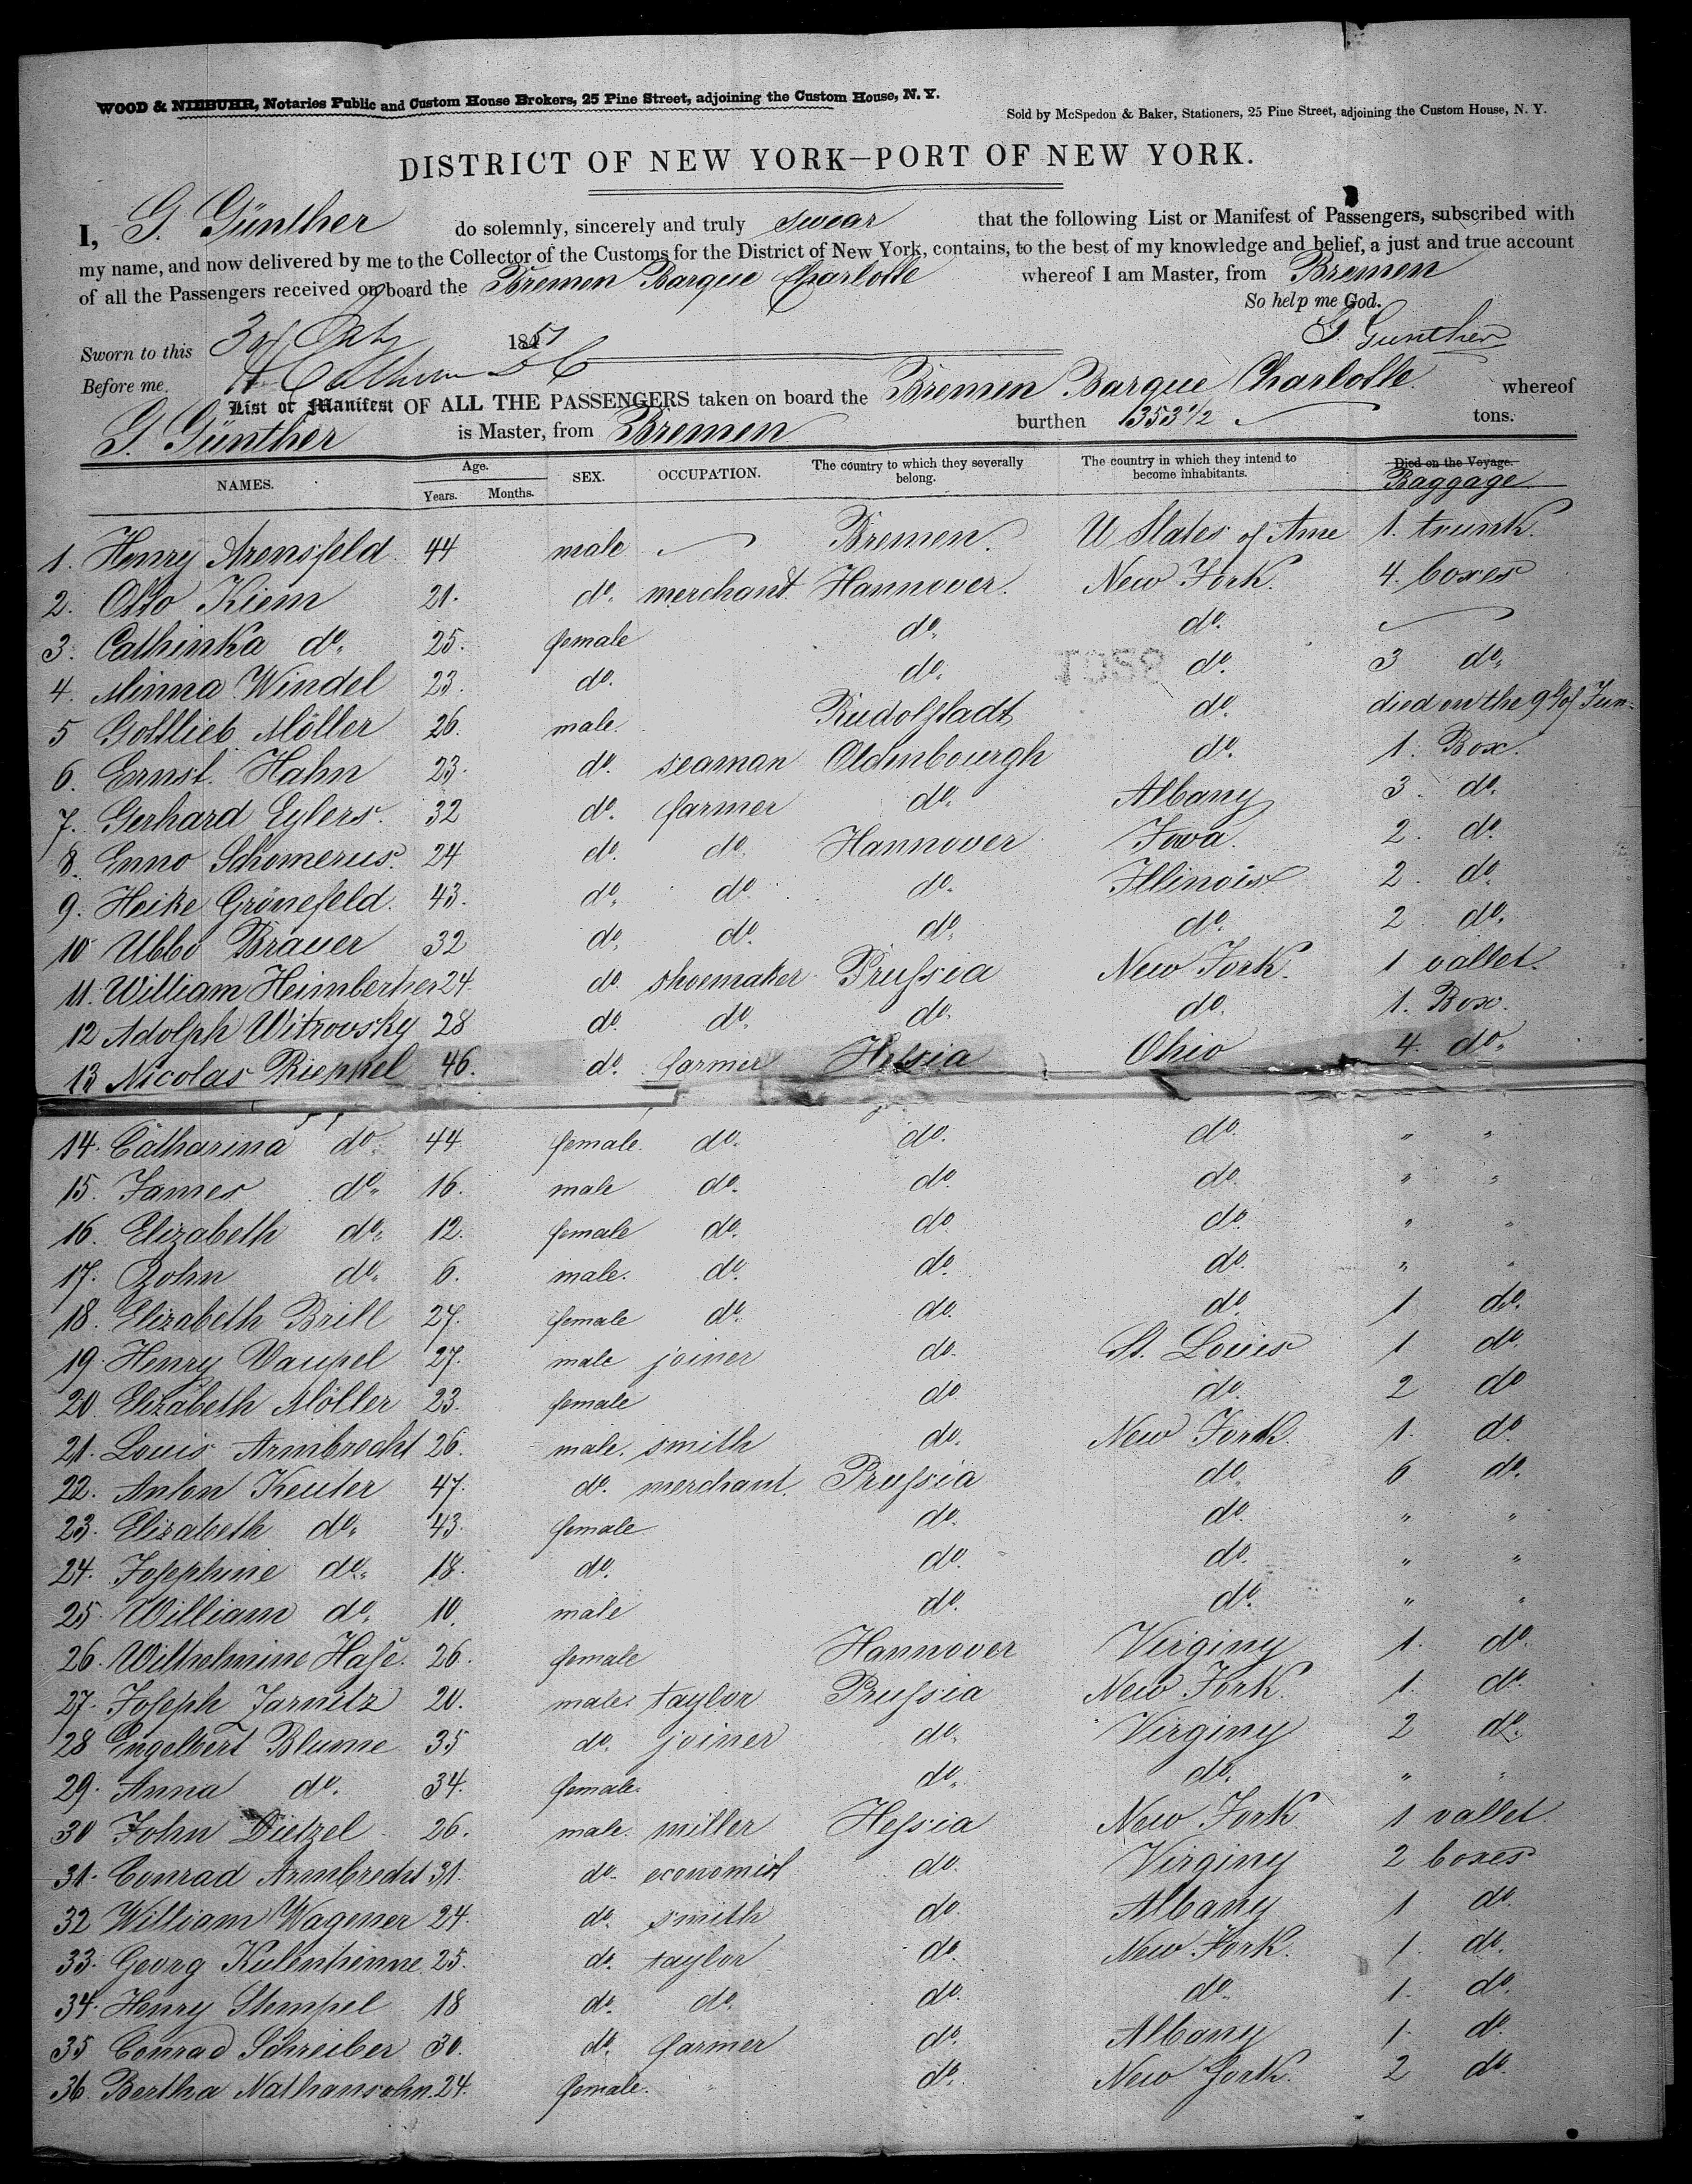 WOOD & NIEBUHR, Notaries Public and Custom House Brokers, 25 Pine Street, adjoining the Custom House, N. Y.
Sold by McSpedon & Baker, Stationers, 25 Pine Street, adjoining the Custom House, N. Y.
DISTRICT OF NEW YORK—PORT OF NEW YORK.
I, G. Günther do solemnly, sincerely and truly swear that the following List or Manifest of Passengers, subscribed with
my name, and now delivered by me to the Collector of the Customs for the District of New York, contains, to the best of my knowledge and belief, a just and true account
of all the Passengers received on board the Bremen Barque Charlotte whereof I am Master, from Bremen
So help me God.
Sworn to this 3 of July 1851 G Gunther
Before me.
List or Manifest OF ALL THE PASSENGERS taken on board the Bremen Barque Charlotte whereof
G. Günther is Master, from Bremen burthen 1353 1/2 tons.
NAMES. Age. Years. Months. SEX. OCCUPATION. The country to which they severally belong. The country in which they intend to become inhabitants. Died on the Voyage. Baggage
1. Henry Arensfeld 44 male Bremen. U States of Ame 1. trunk.
2. Otto Kiem 21. do. merchant Hannover. New York. 4. boxes
3. Cathinka do. 25. female do. do.
4. Minna Windel 23. do. do. do. 3 do.
5 Gottlieb Möller 26. male. Rudolstadt do. died on the 9th of Jun.
6. Ernst Hahn 23. do. seaman Oldenbourgh do. 1. Box.
7. Gerhard Eylers. 32 do. farmer do. Albany 3. do.
8. Enno Schomerus. 24 do. do. Hannover Iowa. 2. do.
9. Heike Grönefeld. 43. do. do. do. Illinois 2. do.
10 Ubbo Brauer 32 do. do. do. do. 2 do.
11. William Heimberher 24. do. shoemaker Prussia New York. 1 vallet.
12 Adolph Witrovsky 28 do. do. do. do. 1. Box.
13 Nicolas Rieppel 46. do. farmer Hessia Ohio 4. do.
14. Catharina do. 44 female. do. do. do. " "
15. James do. 16. male do. do. do. " "
16. Elizabeth do. 12. female do. do. do. " "
17. John do. 6. male. do. do. do. " "
18. Elizabeth Brill 27. female do. do. do. 1 do.
19. Henry Vaupel 27. male joiner do. St. Louis 1 do.
20. Elizabeth Möller 23. female do. do. 2 do
21. Louis Armbrecht 26. male. smith do. New York. 1. do.
22. Anton Keuter 47. do. merchant. Prussia do. 6 do.
23. Elizabeth do. 43. female do. do. " "
24. Josephine do. 18. do. do. do. " "
25. William do. 10. male do. do. " "
26. Wilhelmine Hase. 26. female Hannover Virginy 1. do.
27. Joseph Jarnitz 20. male. taylor Prussia New York. 1. do.
28 Engelbert Blume 35 do. joiner do. Virginy 2 do.
29. Anna do. 34. female. do. do. " "
30 John Dietzel 26. male. miller Hessia New York 1 vallet.
31. Conrad Armbrecht 31. do. economist do. Virginy 2 boxes
32 William Wagener 24. do. smith do. Albany 1 do.
33. Georg Kulenhenne 25. do. taylor do. New York. 1. do.
34. Henry Stempel 18 do. do. do. do. 1. do.
35 Conrad Schreiber 30. do. farmer do. Albany 1. do.
36. Bertha Nathansohn. 24. female. do. New York. 2 do.